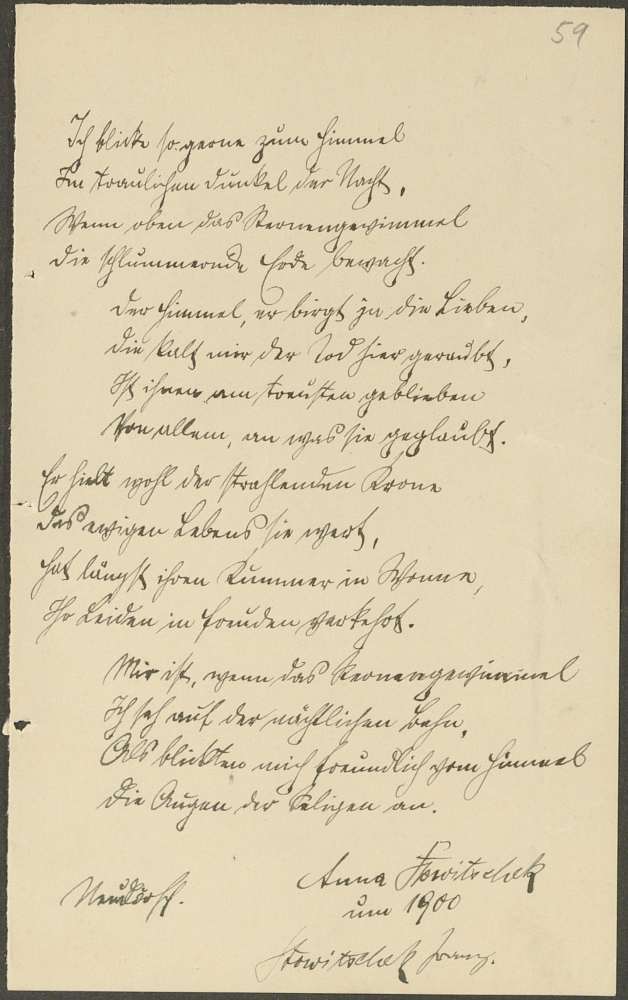 59
Ich blicke so gerne zum Himmel
Im traulichen Dunkel der Nacht,
Wenn oben das Sternengewimmel
Die schlummernde Erde bewacht.
Der Himmel, er birgt ja die Lieben,
Die kalt mir der Tod hier geraubt,
Ist ihnen am treusten geblieben
Von allem, an was sie geglaubt.
Er hielt wohl der strahlenden Krone
Des ewigen Lebens sie wert,
Hat längst ihren Kummer in Wonne,
Ihr Leiden in Freuden verkehrt.
Mir ist, wenn das Sternengewimmel
Ich seh auf der nächtlichen Bahn,
Als blickten mich freundlich vom Himmel
Die Augen der Seligen an.
Anna
Neudorf.
um 1900
Franz.